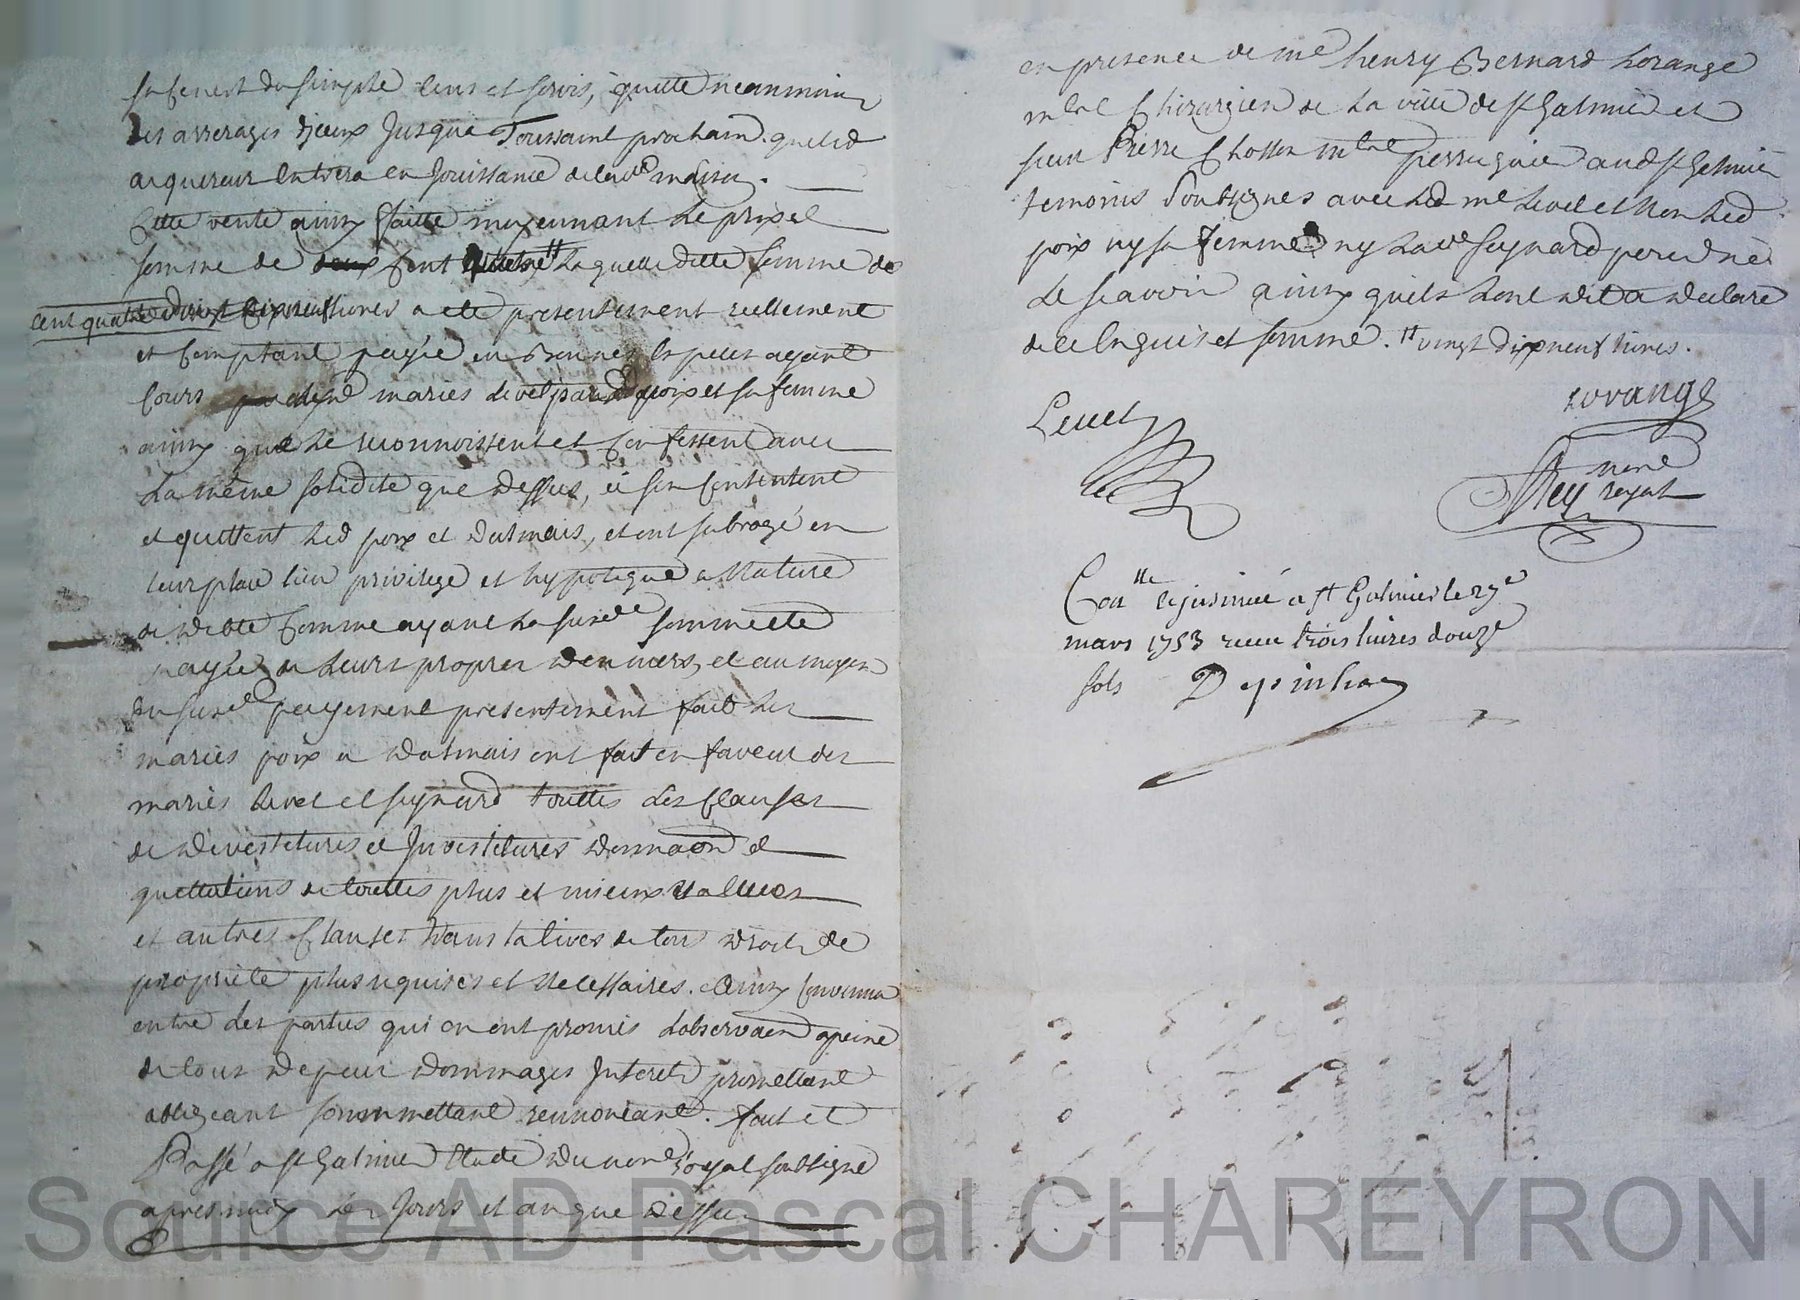 du simple cens et servis, quitte neanmoins
des arrerages d'jceux Jusqu'a Toussaint prochain. que led
acquereur entrera en jouissance de lad maison.
Cette vente ainsy faitte moyennant le prix et
somme de deux cent laquelle ditte somme de
cent quatre vingt dixneuf livres a ete presentement reellement
et comptant payée en bonnes especes ayant
cours mariés Levet par led poix et sa femme
ainsy que le reconnoissent et confessent avec
La même solidité que dessus, s'en contentent
et quittent led poix et Dalmais, et ont subrogé en
leur place lieu privilege et hypoteque a Nature
de debte comme ayant la susd somme eté
payée de leurs propres deniers, et au moyen
du susd payement presentement fait les
mariés poix et Dalmais ont fait en faveur des
mariés Levet et seynard touttes les clauses
de devestitures et Investitures et
quittations de touttes plus et mieux values
et autres clauses translatives de tous droits de
proprieté plus requises et necessaires. Ainsy convenu
entre les parties qui ont promis l'observer a peine
de tous depens dommages Interets promettant
obligeant soummettant renonceant. fait et
Passé a st Galmier Etude du nore royal soussigné
apres midy les Jours et an que dessus
en presence de me henry Bernard Lorange
mtre chirurgien de La ville de st Galmier et
sieur Pierre Chosson mtre perruquier aud st Galmier
temoins soussignés avec led me Levet et non led
poix ny sa femme ny lad seynard pour ne
Le sçavoir ainsy quils l'ont dit et declaré
de ce enquis et sommé. vingt dixneuf livres.
Levet
Lorange
nore
royal
Conlle et jnsinué a st Galmier le 27e
mars 1753 receu trois livres douze
sols Depinhac
Source AD Pascal CHAREYRON